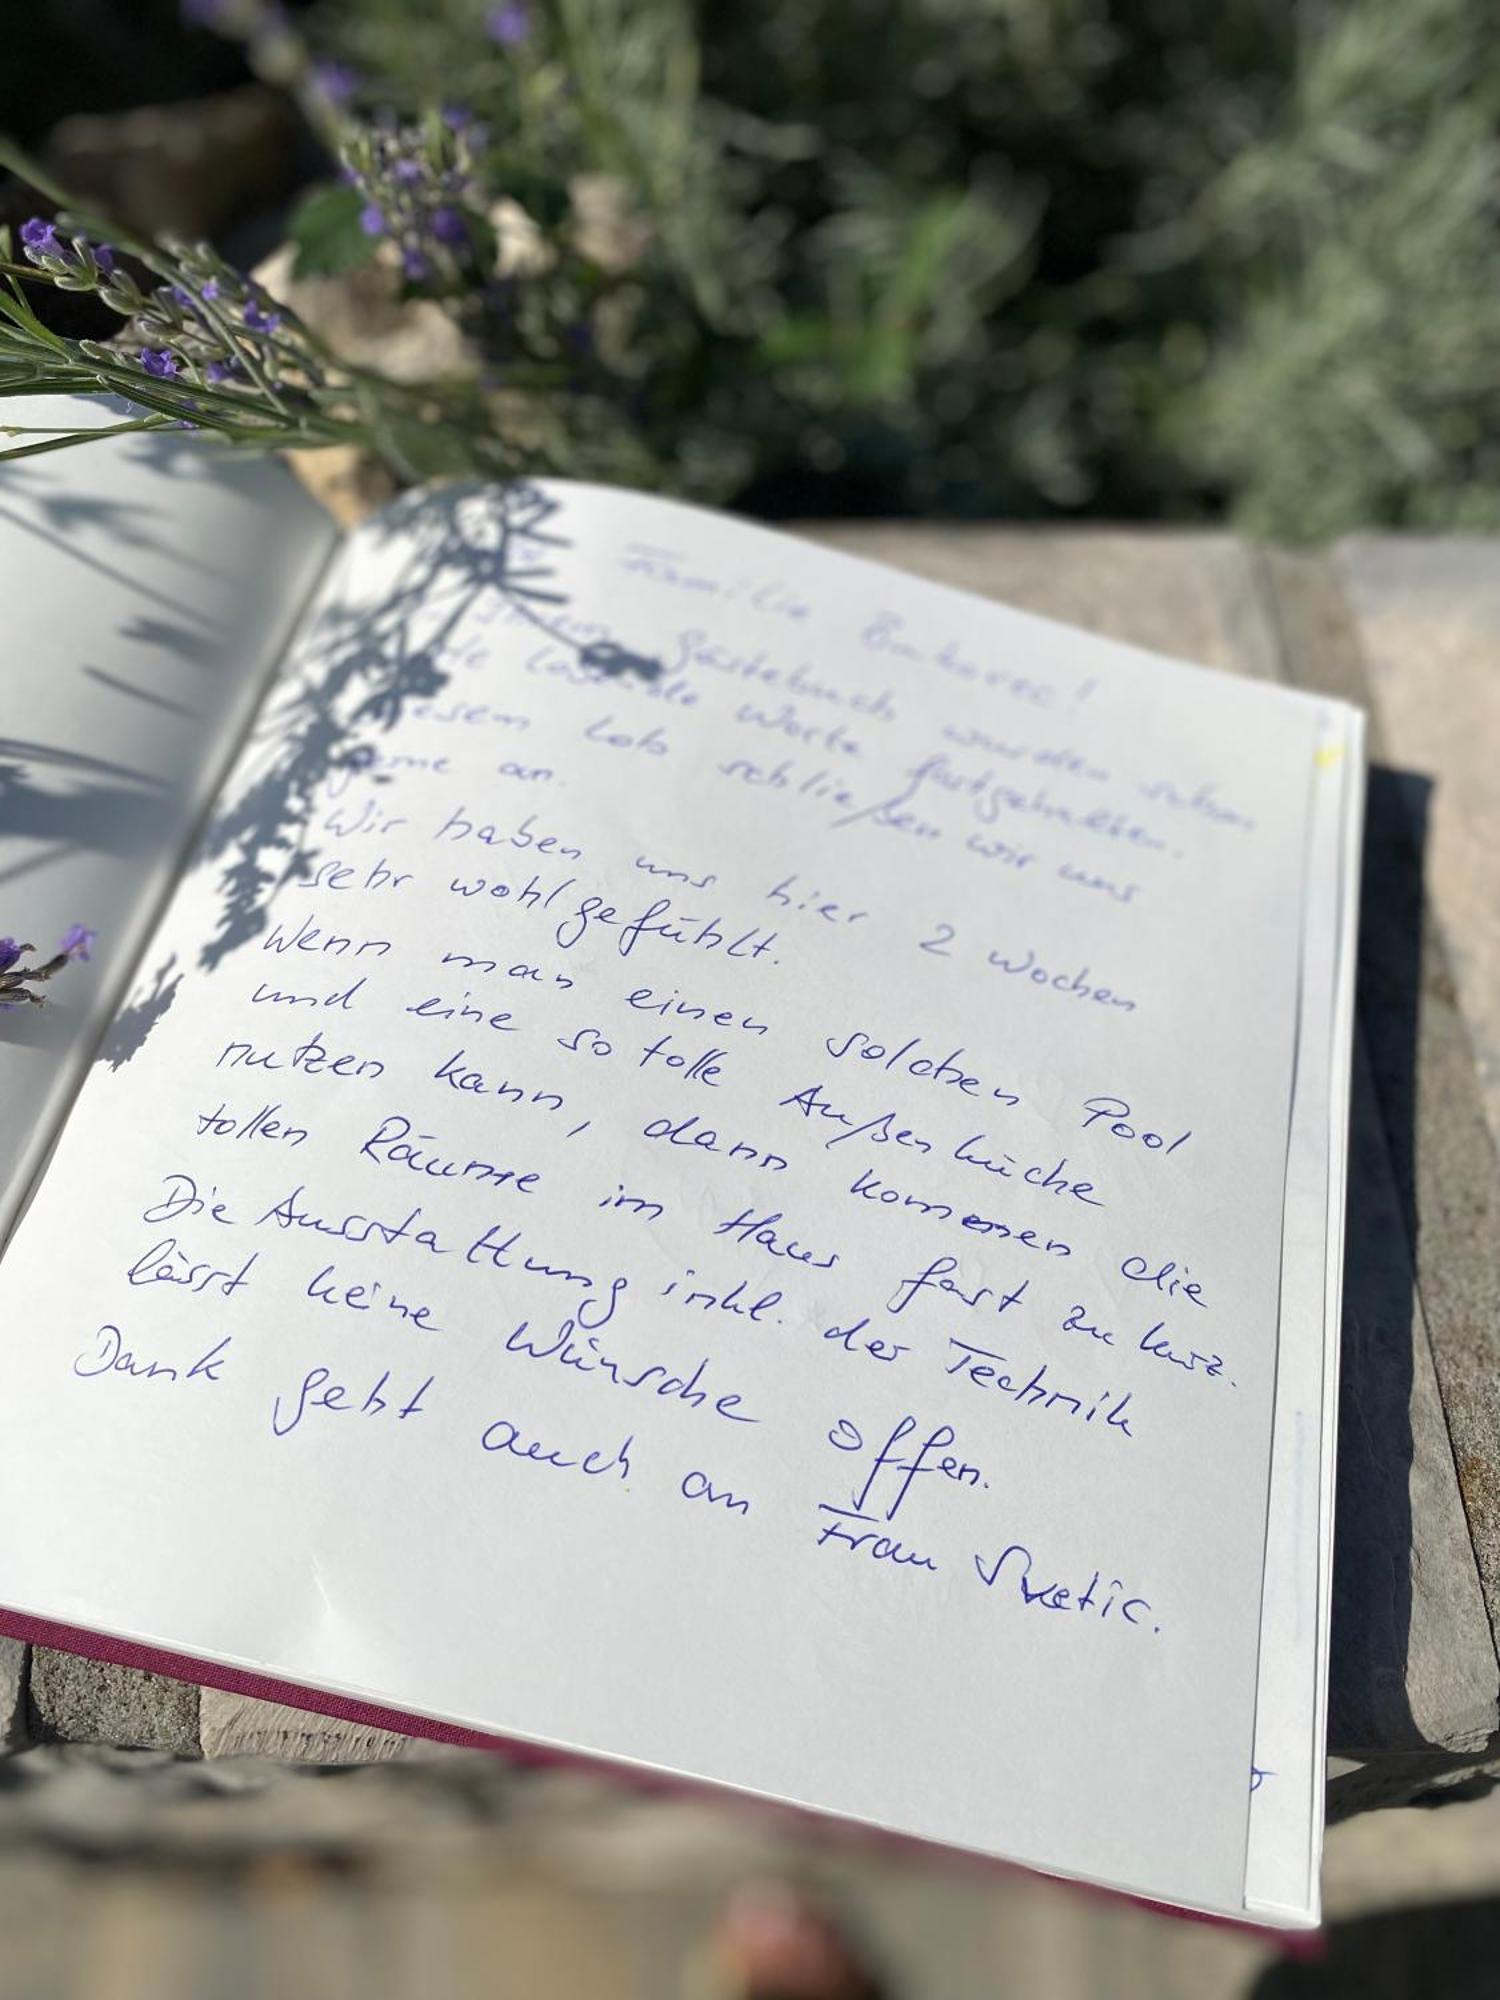 Familie
Ihrem Gästebuch wurden schon
lobende Worte festgehalten.
diesem Lob schließen wir uns
gerne an.
Wir haben uns hier 2 Wochen
sehr wohl gefühlt.
Wenn man einen solchen Pool
und eine so tolle Außenküche
nutzen kann, dann kommen die
tollen Räume im Haus fast zu kurz.
Die Ausstattung inkl. der Technik
lässt keine Wünsche offen.
Dank geht auch an Frau Svetic.